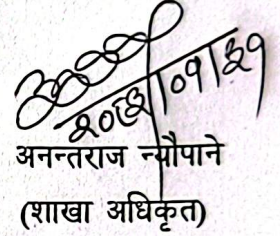 २०८१।०१।३१
अनन्तराज न्यौपाने
(शाखा अधिकृत)